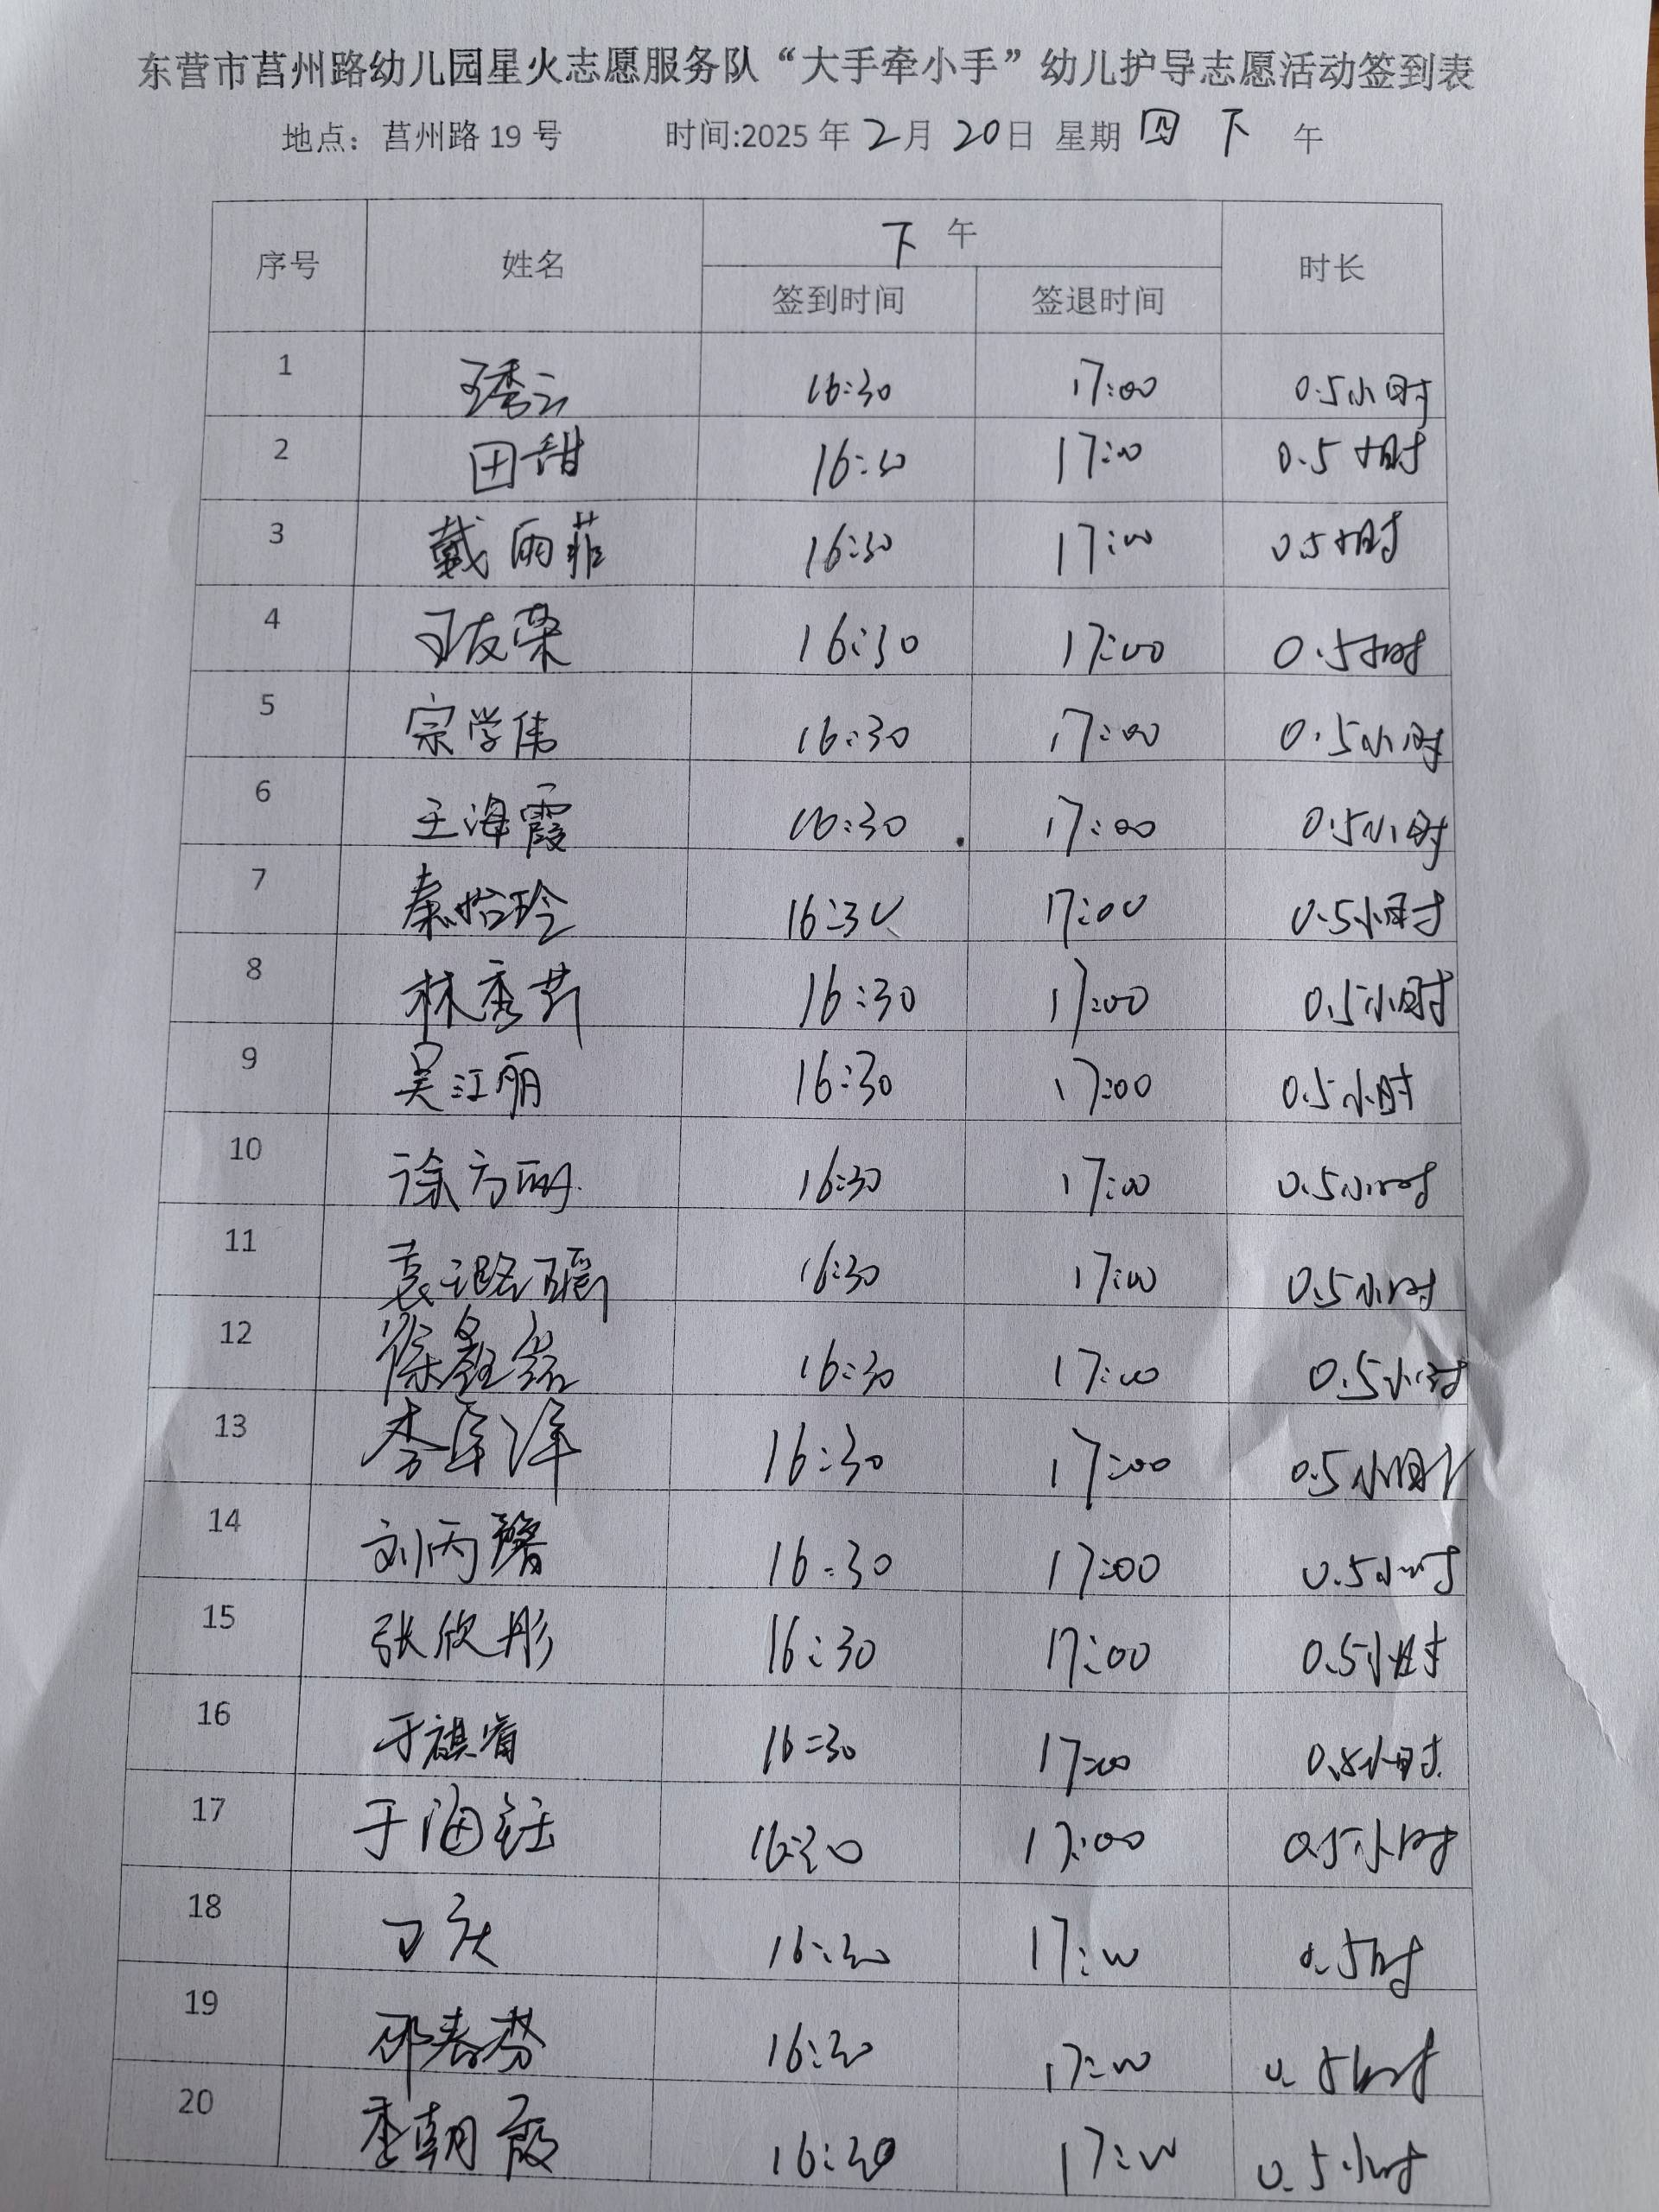 东营市莒州路幼儿园星火志愿服务队“大手牵小手”幼儿护导志愿活动签到表
地点：莒州路 19 号 时间:2025 年 2 月 20 日 星期 四 下 午
序号 姓名 下 午 时长
签到时间 签退时间
1 王秀云 16:30 17:00 0.5小时
2 田甜 16:30 17:00 0.5小时
3 戴丽菲 16:30 17:00 0.5小时
4 王友荣 16:30 17:00 0.5小时
5 宗学伟 16:30 17:00 0.5小时
6 王海霞 16:30 17:00 0.5小时
7 秦怡玲 16:30 17:00 0.5小时
8 林秀芹 16:30 17:00 0.5小时
9 吴江丽 16:30 17:00 0.5小时
10 徐方丽 16:30 17:00 0.5小时
11 袁璐瑶 16:30 17:00 0.5小时
12 16:30 17:00 0.5小时
13 16:30 17:00 0.5小时
14 16:30 17:00 0.5小时
15 张欣彤 16:30 17:00 0.5小时
16 16:30 17:00 0.5小时
17 16:30 17:00 0.5小时
18 16:30 17:00 0.5时
19 邵春芬 16:30 17:00 0.5小时
20 季朝霞 16:30 17:00 0.5小时